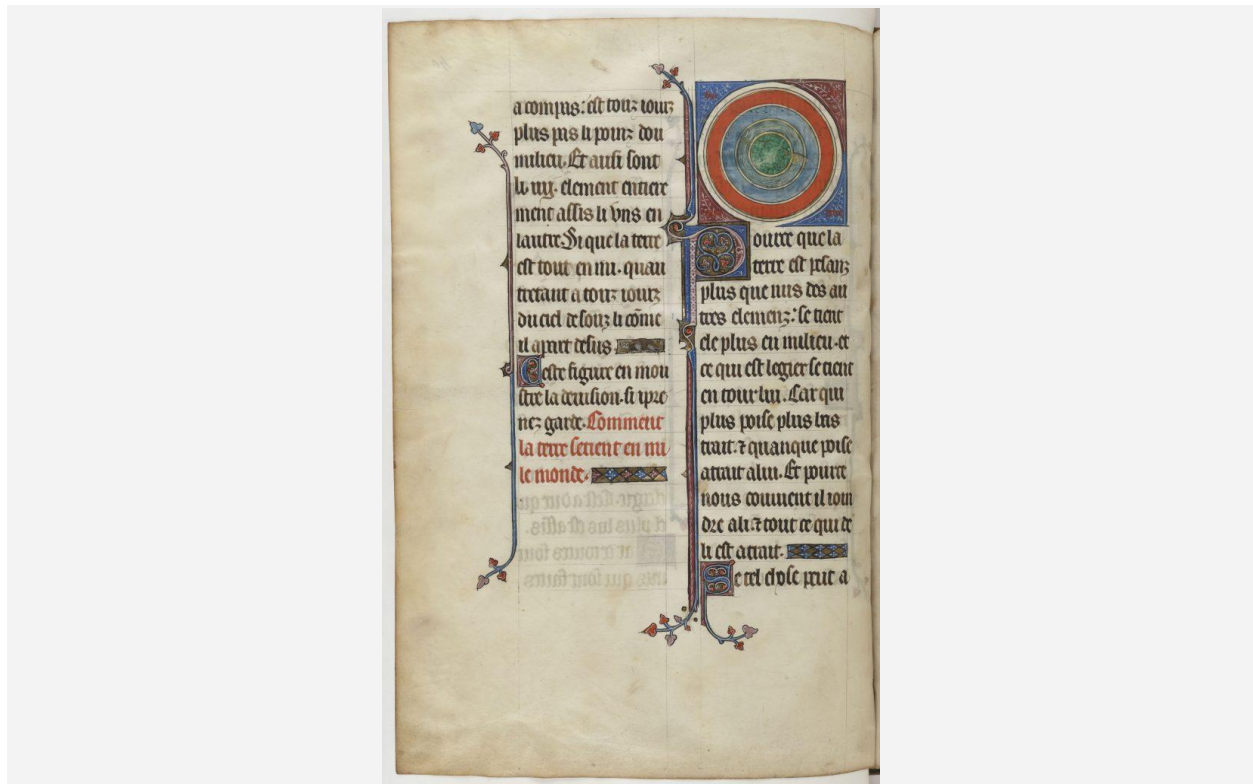 a compas: est touz iourz
plus pres li poinz dou
milieu. Et ausi sont
li iiij. element entiere
ment assis li vns en
lautre. Si que la terre
est tout en mi. quan
tretant a touz iourz
du ciel desouz li cōme
il apert desus.
Ceste figure en mou
stre la deuision. si ipre
nez garde. Comment
la terre se tient en mi
le monde.
Pource que la
terre est pesanz
plus que nus des au
tres elemenz: se tient
ele plus en milieu. et
ce qui est legier se tient
en tour lui. Car qui
plus poise plus bas
trait. ⁊ quanque poise
atrait a lui. Et pource
nous couuient il ioin
dre a li. ⁊ tout ce qui de
li est atrait.
Se tel chose peut a